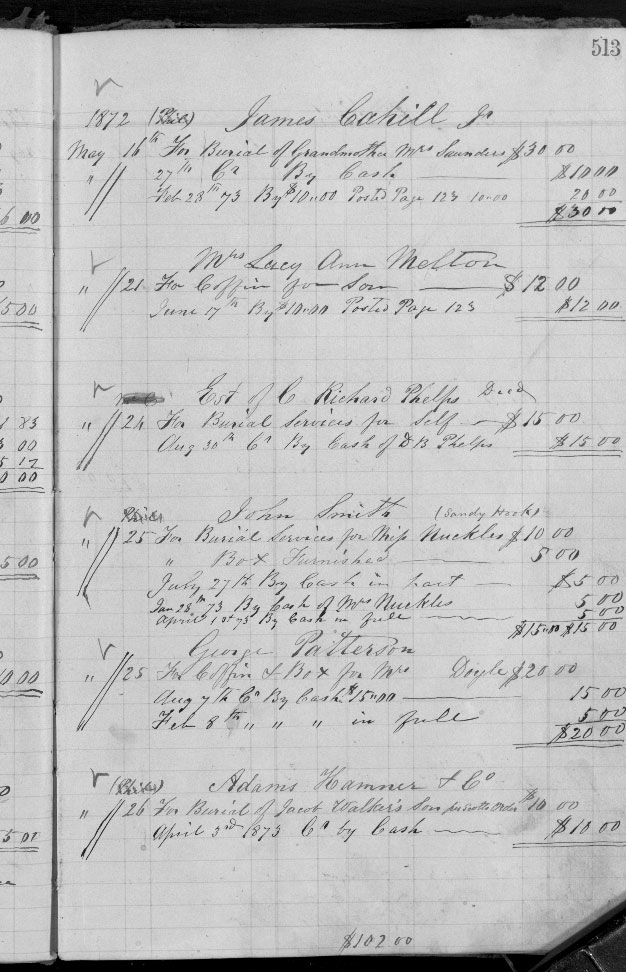 513
1872 James Cahill Jr
May 16th For Burial of Grandmother Mrs Saunders $30 00
" 27th Cr By Cash $10 00
Feb 28th 73 By $10.00 Posted Page 123 10.00 20 00
$30 00
Mrs Lucy Ann Melton
" 21 For Coffin for Son $12 00
June 17th By $10.00 Posted Page 123 $12 00
Est of C Richard Phelps Decd
" 24 For Burial Services for Self $15 00
Aug 30th Cr By Cash of D B Phelps $15 00
John Smith (Sandy Hook)
" 25 For Burial Services for Miss Nuckles $10 00
" Box Furnished 5 00
July 27th By Cash in part $5 00
Jan 28th 73 By Cash of Mrs Nuckles 5 00
April 1st 73 By Cash in full 5 00
$15.00 $15 00
George Patterson
" 25 For Coffin & Box for Mrs Doyle $20 00
Aug 7th Cr By Cash $15.00 15 00
Feb 8th " " " in full 5 00
$20 00
Adams Hamner & Co
" 26 For Burial of Jacob Walker's Son Order $10 00
April 3rd 1873 Cr by Cash $10 00
$102 00
6 00
5 00
1 83
3 00
5 17
0 00
5 00
10 00
5 01